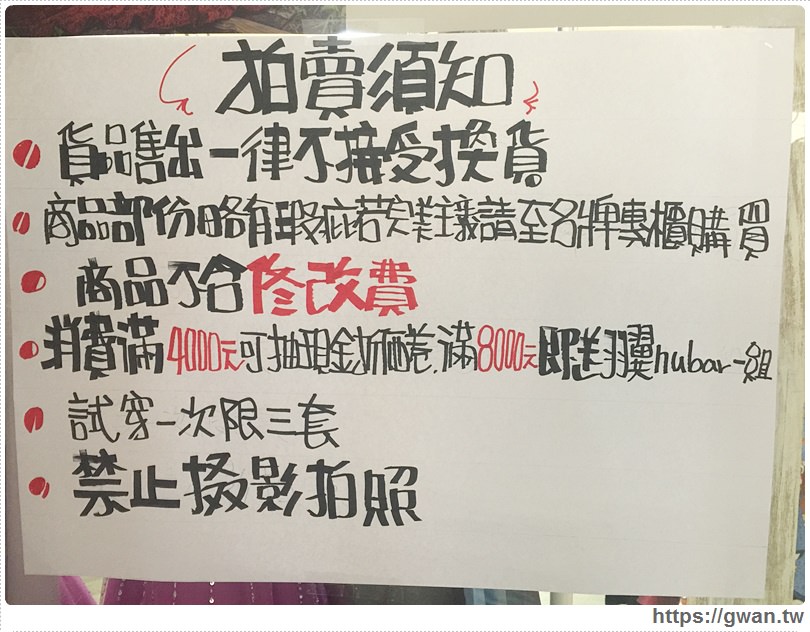 拍賣須知
貨品售出一律不接受換貨
商品部份略有瑕疵若完美主義請至名牌專櫃購買
商品不含修改費
消費滿4000元可抽現金折價卷,滿8000元即送羽翼nubar一組
試穿一次限三套
禁止摄影拍照
https://gwan.tw